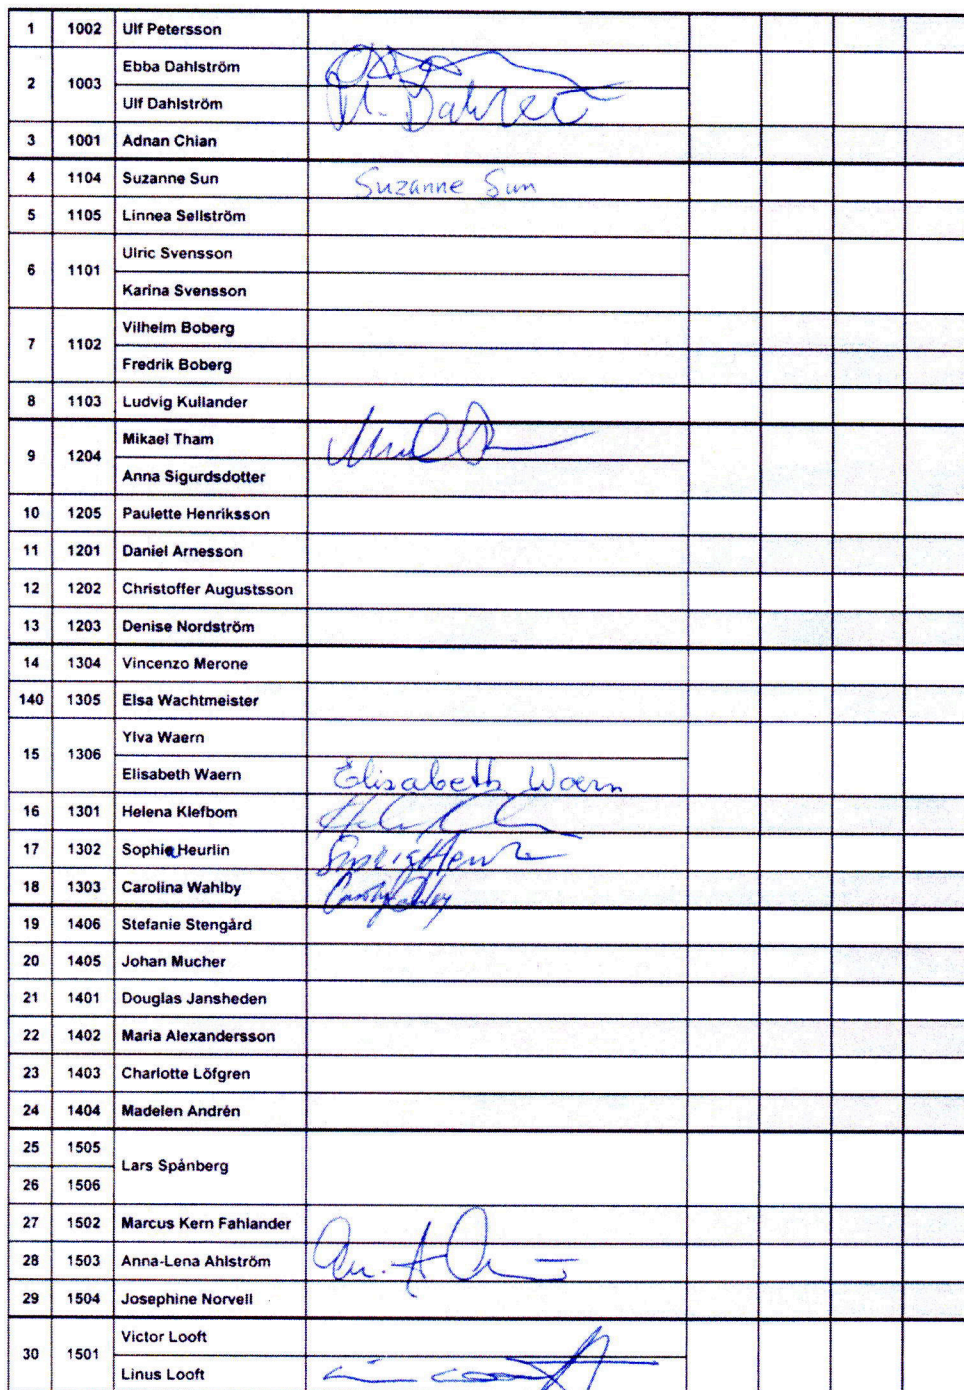 1 1002 Ulf Petersson
2 1003 Ebba Dahlström
Ulf Dahlström
3 1001 Adnan Chian
4 1104 Suzanne Sun Suzanne Sun
5 1105 Linnea Sellström
6 1101 Ulric Svensson
Karina Svensson
7 1102 Vilhelm Boberg
Fredrik Boberg
8 1103 Ludvig Kullander
9 1204 Mikael Tham
Anna Sigurdsdotter
10 1205 Paulette Henriksson
11 1201 Daniel Arnesson
12 1202 Christoffer Augustsson
13 1203 Denise Nordström
14 1304 Vincenzo Merone
140 1305 Elsa Wachtmeister
15 1306 Ylva Waern
Elisabeth Waern Elisabeth Waern
16 1301 Helena Klefbom
17 1302 Sophie Heurlin
18 1303 Carolina Wahlby
19 1406 Stefanie Stengård
20 1405 Johan Mucher
21 1401 Douglas Jansheden
22 1402 Maria Alexandersson
23 1403 Charlotte Löfgren
24 1404 Madelen Andrén
25 1505 Lars Spånberg
26 1506
27 1502 Marcus Kern Fahlander
28 1503 Anna-Lena Ahlström
29 1504 Josephine Norvell
30 1501 Victor Looft
Linus Looft